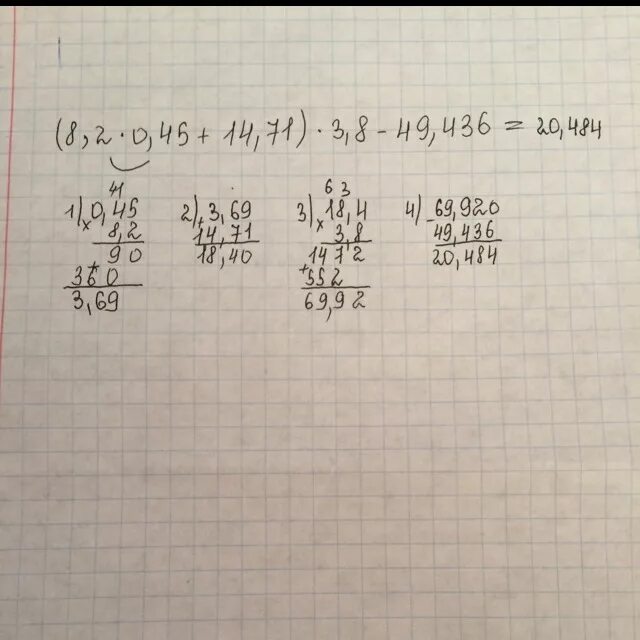 (8,2·0,45+14,71)·3,8-49,436=20,484
41
1) 0,45
× 8,2
90
+
360
3,69
2) 3,69
+
14,71
18,40
6 3
3) 18,4
× 3,8
1472
+
552
69,92
4) 69,920
-
49,436
20,484